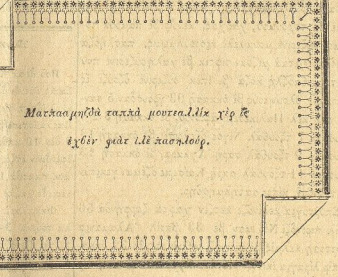 Ματπααμηζδὰ ταππὰ μουτεαλλὶκ χὲρ ἲς
ἐχβὲν φιὰτ ἰλὲ παπηλούρ.